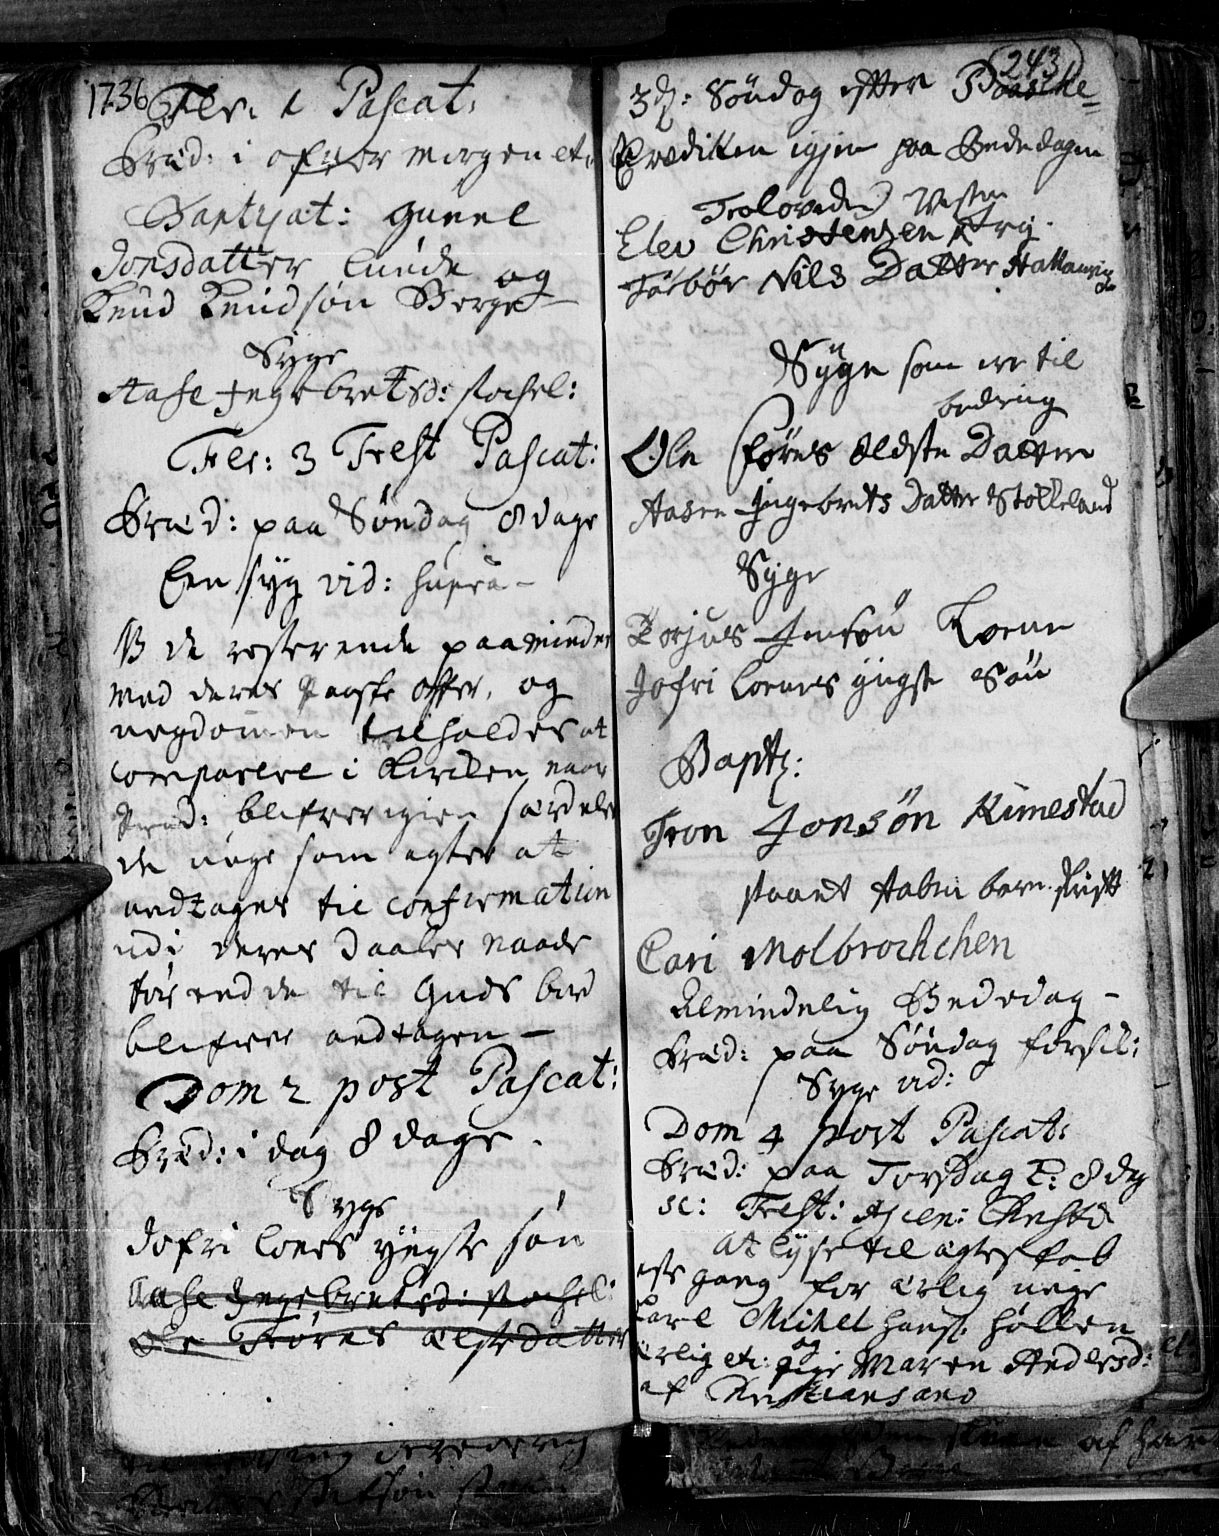 1736
Fer: 2 Pascat:
Præd: i ofver morgen etc
Baptizat: Gunel
Jonsdatter Lunde og
Knud Knudsøn Berge
Syge
Aase Ingebretsd: Stochel:
Fer: 3 Fest Pascat:
Præd: paa Søndag 8 dage
Een syg vid: supra
NB de resterende paaminder
med deres Paaske offer, og
ungdomen tilholdes at
comparere i Kircken naar
Præd: blifver igien særdeles
de unge som agter at
andtages til confirmation
udi deres Daabes naade
før end de til Guds bord
blifver andtagen
Dom 2 post Pascat:
Præd: i dag 8 dage.
Syge
Jofri Loenes yngste søn
Aase Ingebretsd: Stochel:
Ole Førres ælste datter
243
3die: Søndag efter Paaske
Prædiken igjen paa Bededagen
Trolovede Vesten
Elev Christensen Try.
Torbør Nils Datter Hallandvig
Syge som ere til
bedring
Ole Førres Ældste Datter
Aasen Ingebrets Datter Stokkeland
Syge
Torjus Jensøn Loene
Jofri Loenes yngste Søn
Baptz:
Tron Jonsøn Rimestad
staaet Aabenbare Skrift
Cari Molbrochchen
Almindelig Bededag
Præd: paa Søndag førstk:
Syge vid:
Dom 4 post Pascat:
Præd: paa Torsdag 8 dag
sc: Fest: Ascen: Christi
At lyse til ægteskab
1ste gang for ærlig unge
Karl Michel Hans: Høllen
og
ærlig etc: pige Maren Andersd:
af Christiansand